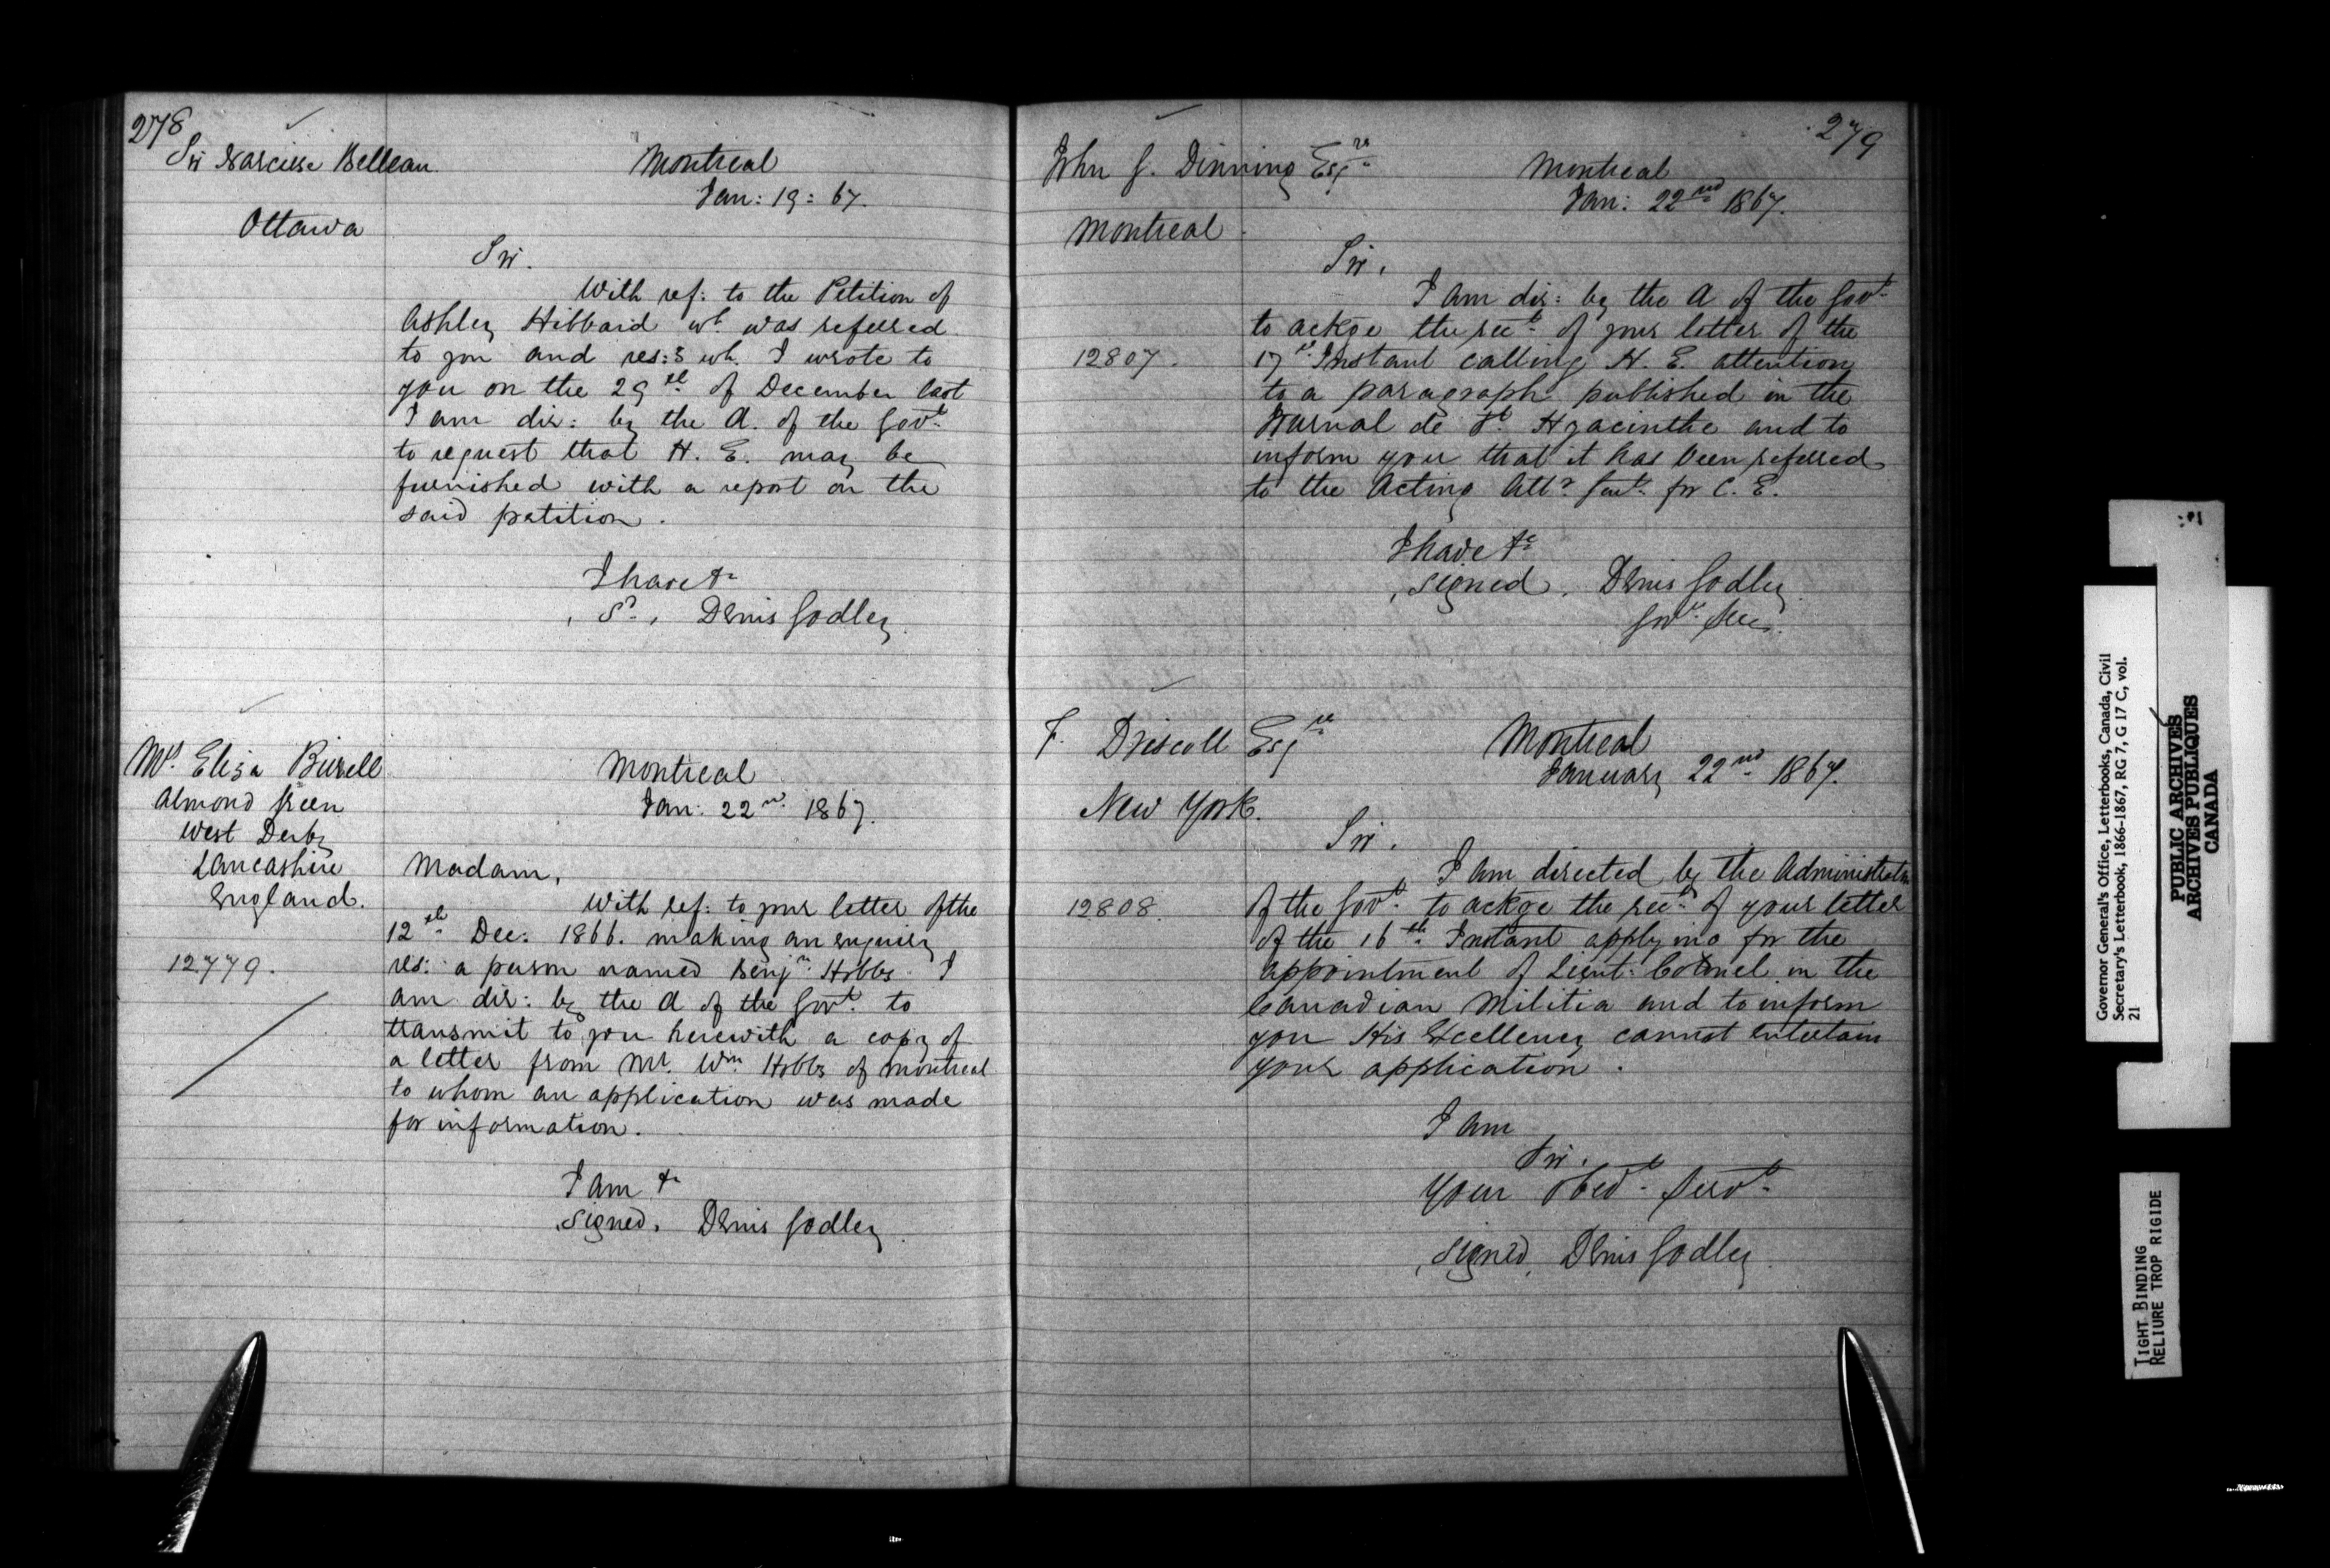 278
Sir Narcisse Belleau
Ottawa
Montreal
Jan: 19: 67.
Sir.
With ref: to the Petition of
Ashley Hibbard wh. was referred
to you and res:g wh. I wrote to
you on the 29th of December last
I am dir: by the A. of the Govt.
to request that H. E. may be
furnished with a report on the
said petition.
I have &c
, Sd., Denis Godley.
Mrs. Eliza Birrell
Almond Green
West Derby
Lancashire
England.
12779.
Montreal
Jan: 22nd 1867.
Madam,
With ref: to your letter of the
12th Dec: 1866. making an enquiry
res: a person named Benjn. Hobbs I
am dir: by the A of the Govt. to
transmit to you herewith a copy of
a letter from Mr. Wm. Hobbs of Montreal
to whom an application was made
for information.
I am &c
,signed, Denis Godley.
279
John G. Dinning Esqre
Montreal.
12807.
Montreal
Jan: 22nd 1867.
Sir,
I am dir: by the A of the Govt.
to ackge the rect. of your letter of the
17th Instant calling H. E. attention
to a paragraph published in the
Journal de St. Hyacinthe and to
inform you that it has been referred
to the Acting Atty Genl. for C. E.
I have &c
,signed, Denis Godley.
Govr. Sec.
F. Driscoll Esqre
New York.
12808.
Montreal
January 22nd 1867.
Sir,
I am directed by the Administrator
of the Govt. to ackge the rect. of your letter
of the 16th Instant applying for the
appointment of Lieut: Colonel in the
Canadian Militia and to inform
you His Excellency cannot entertain
your application.
I am
Sir,
Your obedt. Servt.
,signed, Denis Godley.
Governor General's Office, Letterbooks, Canada, Civil
Secretary's Letterbook, 1866-1867, RG 7, G 17 C, vol.
21
PUBLIC ARCHIVES
ARCHIVES PUBLIQUES
CANADA
TIGHT BINDING
RELIURE TROP RIGIDE